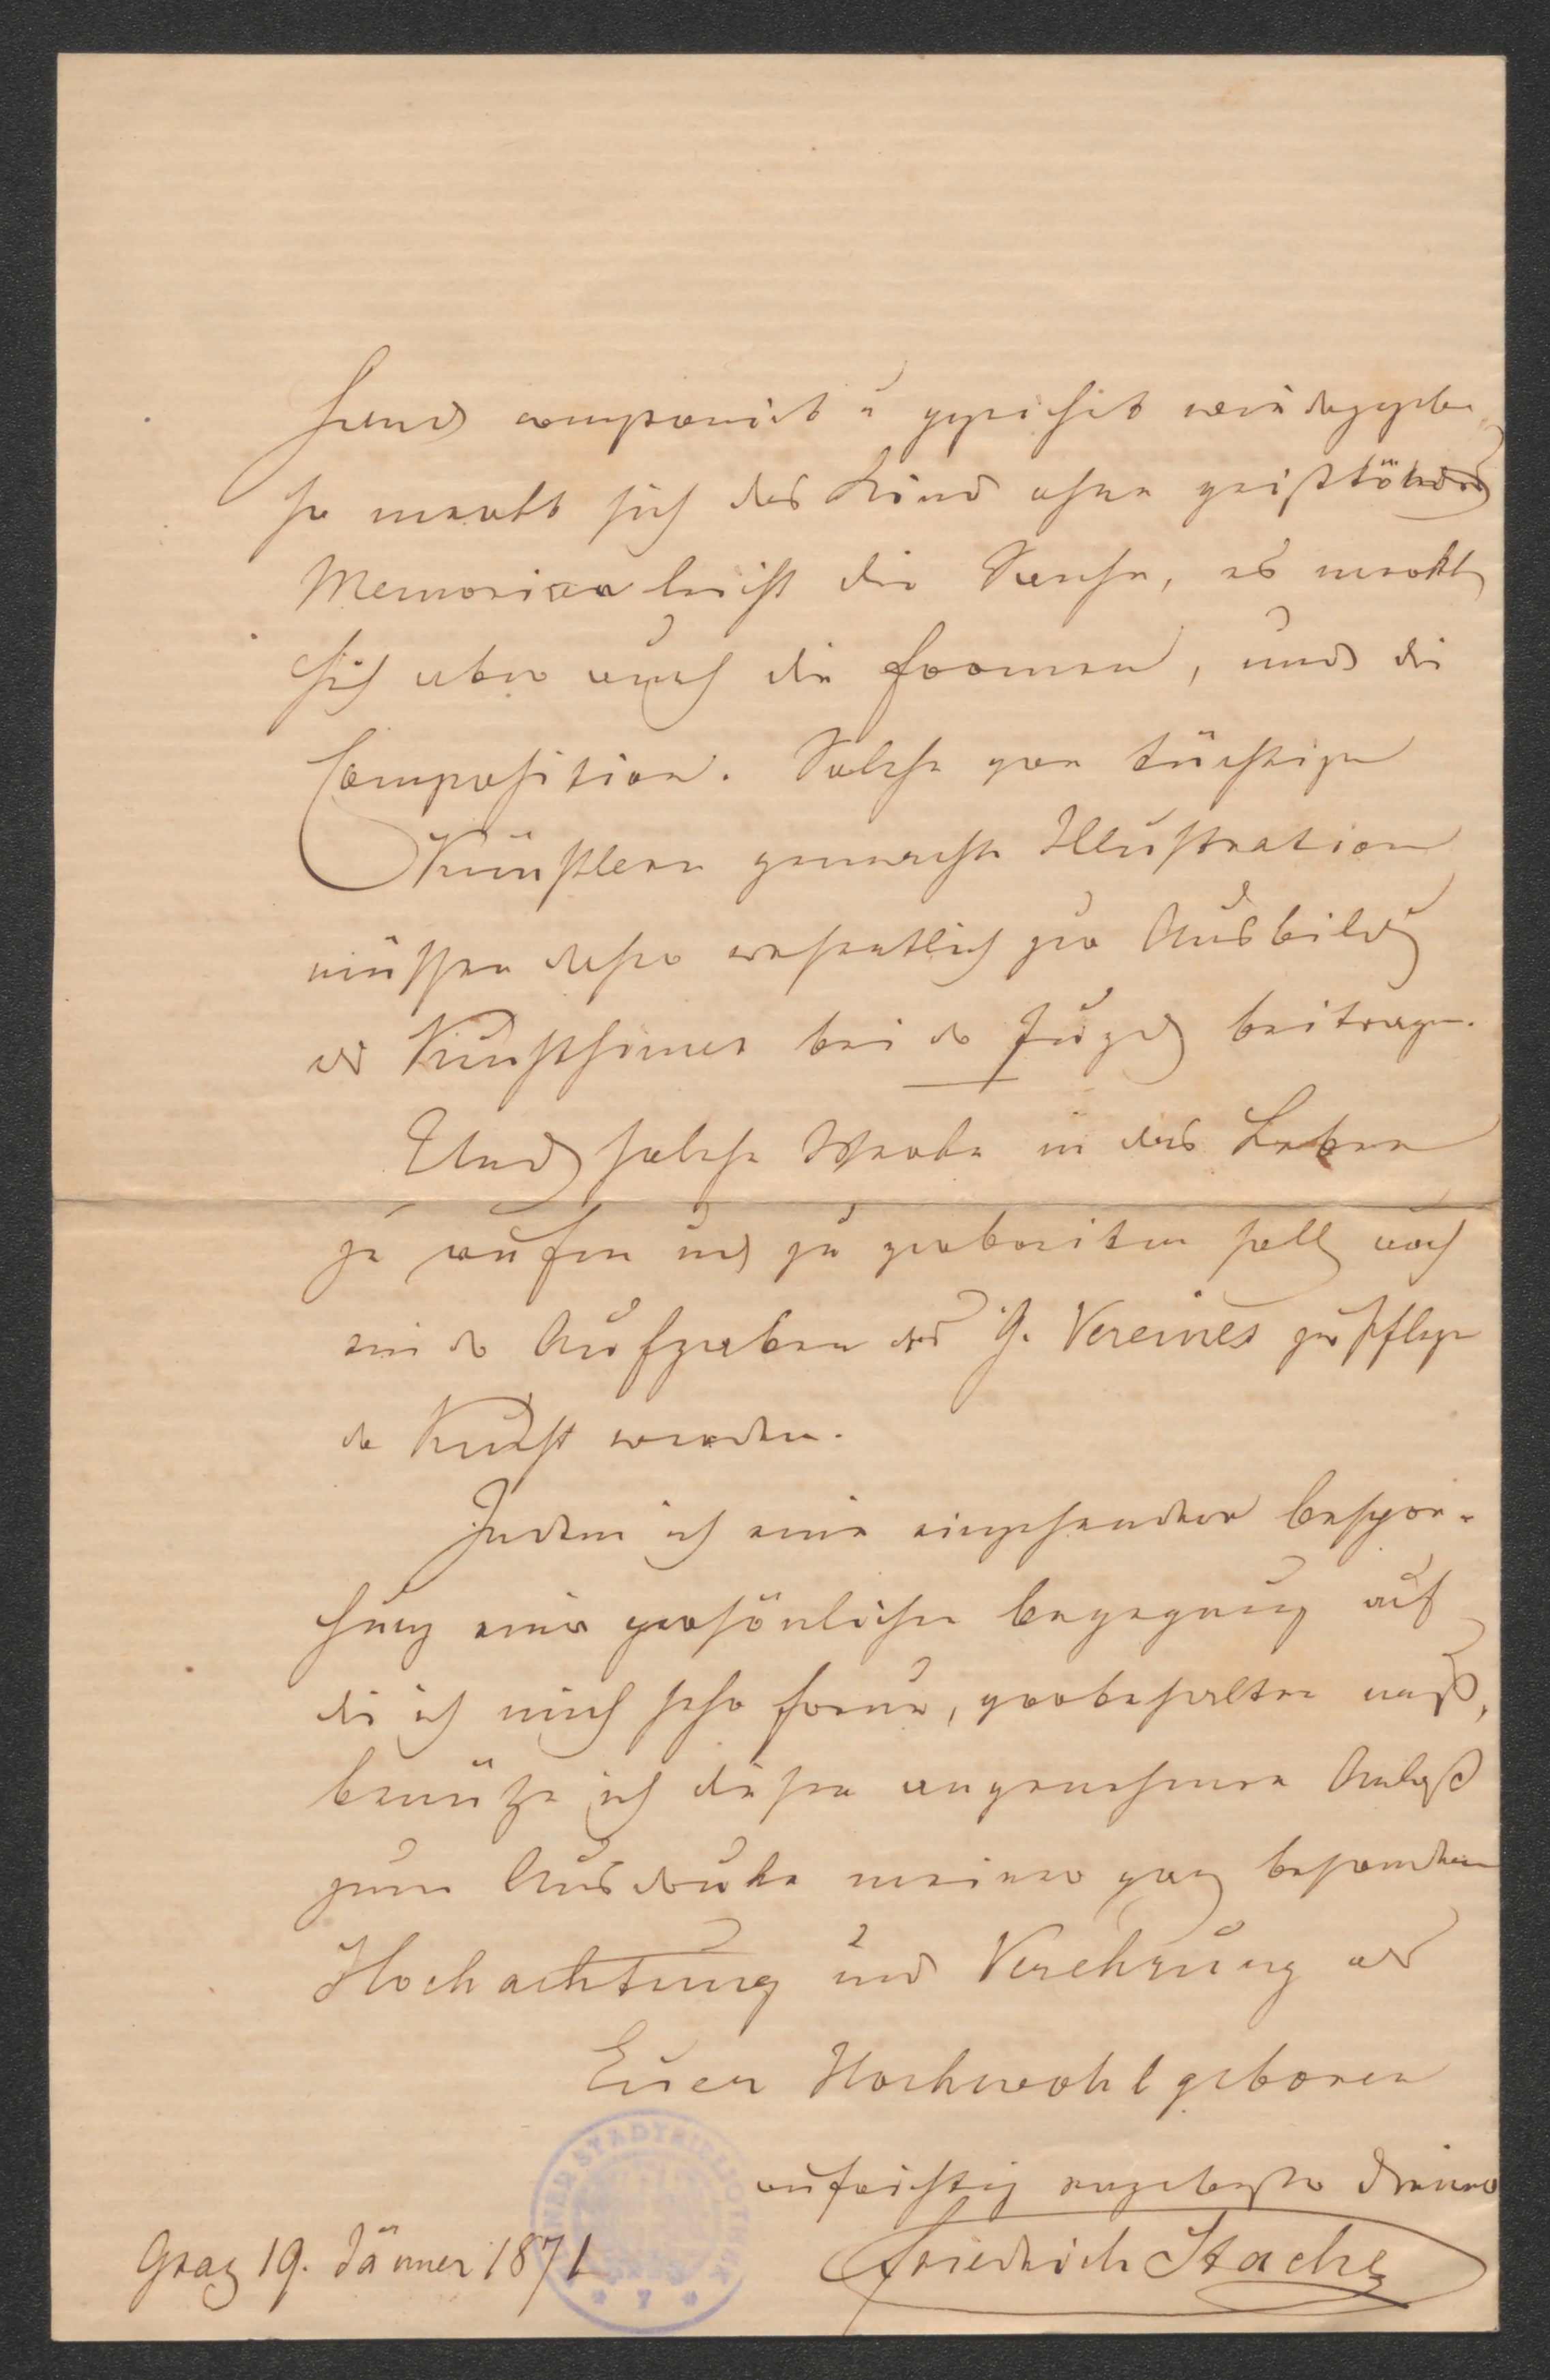 Hand componirt u gezeichnet wiedergegeben
so merkt sich das Kind ohne geisttötend
Memoriren leicht die Sache, es merkt
sich aber auch die Formen, und die
Composition. Solche von tüchtigen
Künstlern gemachte Illustration
müssen daher wesentlich zur Ausbildg
des Kunstsinnes bei der Jugend beitragen.
Und solche Werke in das Leben
zu rufen und zu verbreiten soll auch
eine der Aufgaben des Vereines zur Pflege
der Kunst werden.
Indem ich eine eingehendere Bespre-
chung einer persönlichen Begegnung auf
die ich mich sehr freue, vorbehalten muß,
benütze ich diesen angenehmen Anlaß
zum Ausdrucke meiner ganz besonderen
Hochachtung und Verehrung als
Euer Hochwohlgeboren
aufrichtig ergebenster Diener
Graz 19. Jänner 1871 Friedrich Stache
STADTBIBLIOTHEK
* 7 *